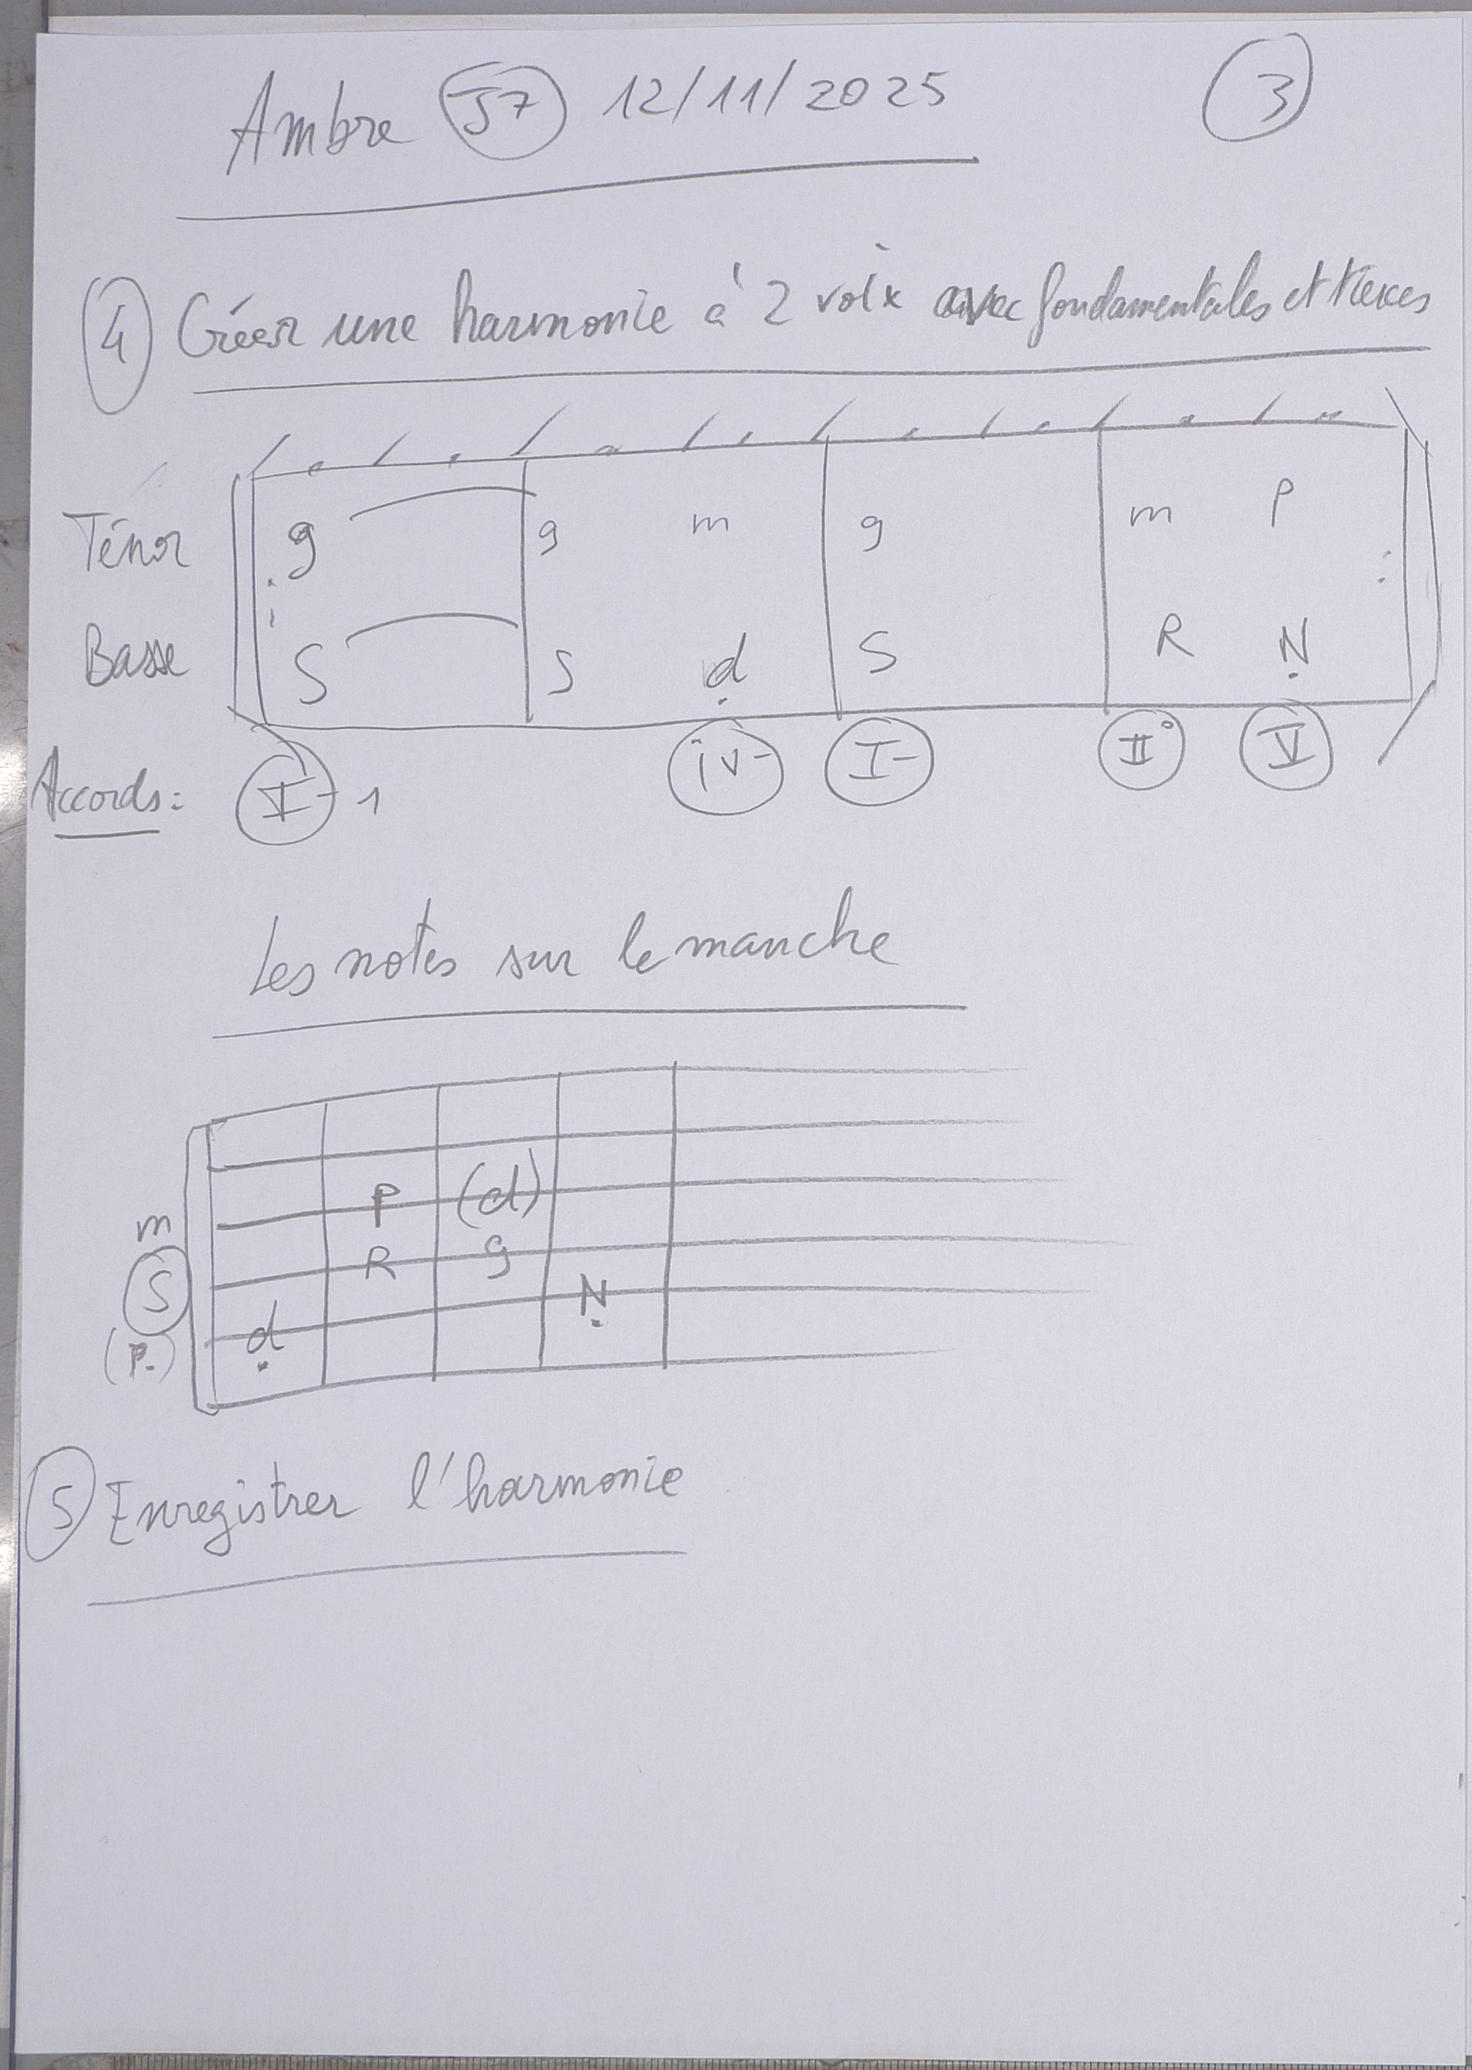 Ambre S7 12/11/2025 3
4 Créer une harmonie à 2 voix avec fondamentales et tierces
Ténor g g m g m P
Basse S S d S R N
Accords: I- 1 iv- I- II° V
Les notes sur le manche
P (d)
m
R g
S
N
(P.) d
5 Enregistrer l'harmonie